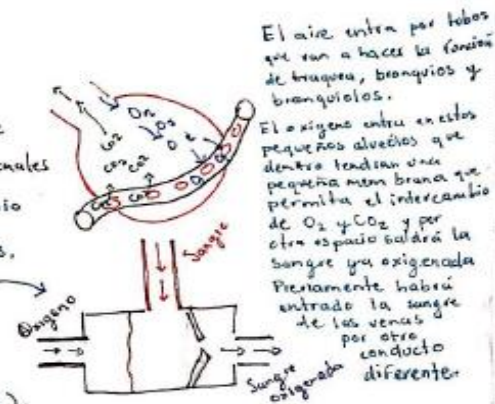 El aire entra por tubos
que van a hacer la función
de traquea, bronquios y
bronquiolos.
El oxígeno entra en estos
pequeños alveolos que
dentro tendrían una
pequeña membrana que
permita el intercambio
de O2 y CO2 y por
otro espacio saldrá la
sangre ya oxigenada
Previamente habrá
entrado la sangre
de las venas
por otro
conducto
diferente.
O2
O2
CO2
CO2
CO2
nales
io
s.
Sangre
Oxigeno
Sangre
oxigenada